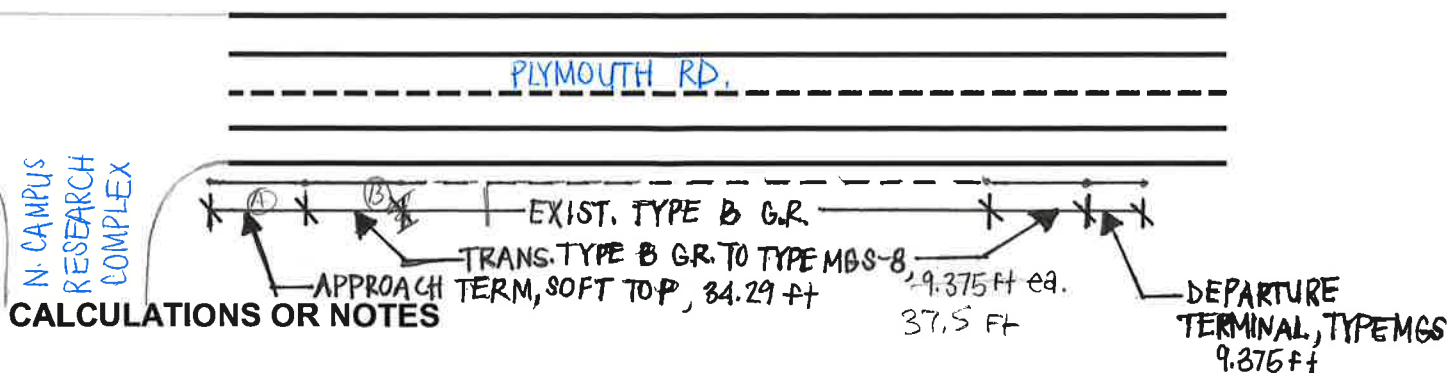 PLYMOUTH RD.
N. CAMPUS
RESEARCH
COMPLEX
A
B
EXIST. TYPE B G.R.
TRANS. TYPE B GR. TO TYPE MGS-8,
9.375 ft ea.
37.5 Ft
APPROACH TERM, SOFT TOP, 34.29 ft
DEPARTURE
TERMINAL, TYPE MGS
9.375 ft
CALCULATIONS OR NOTES